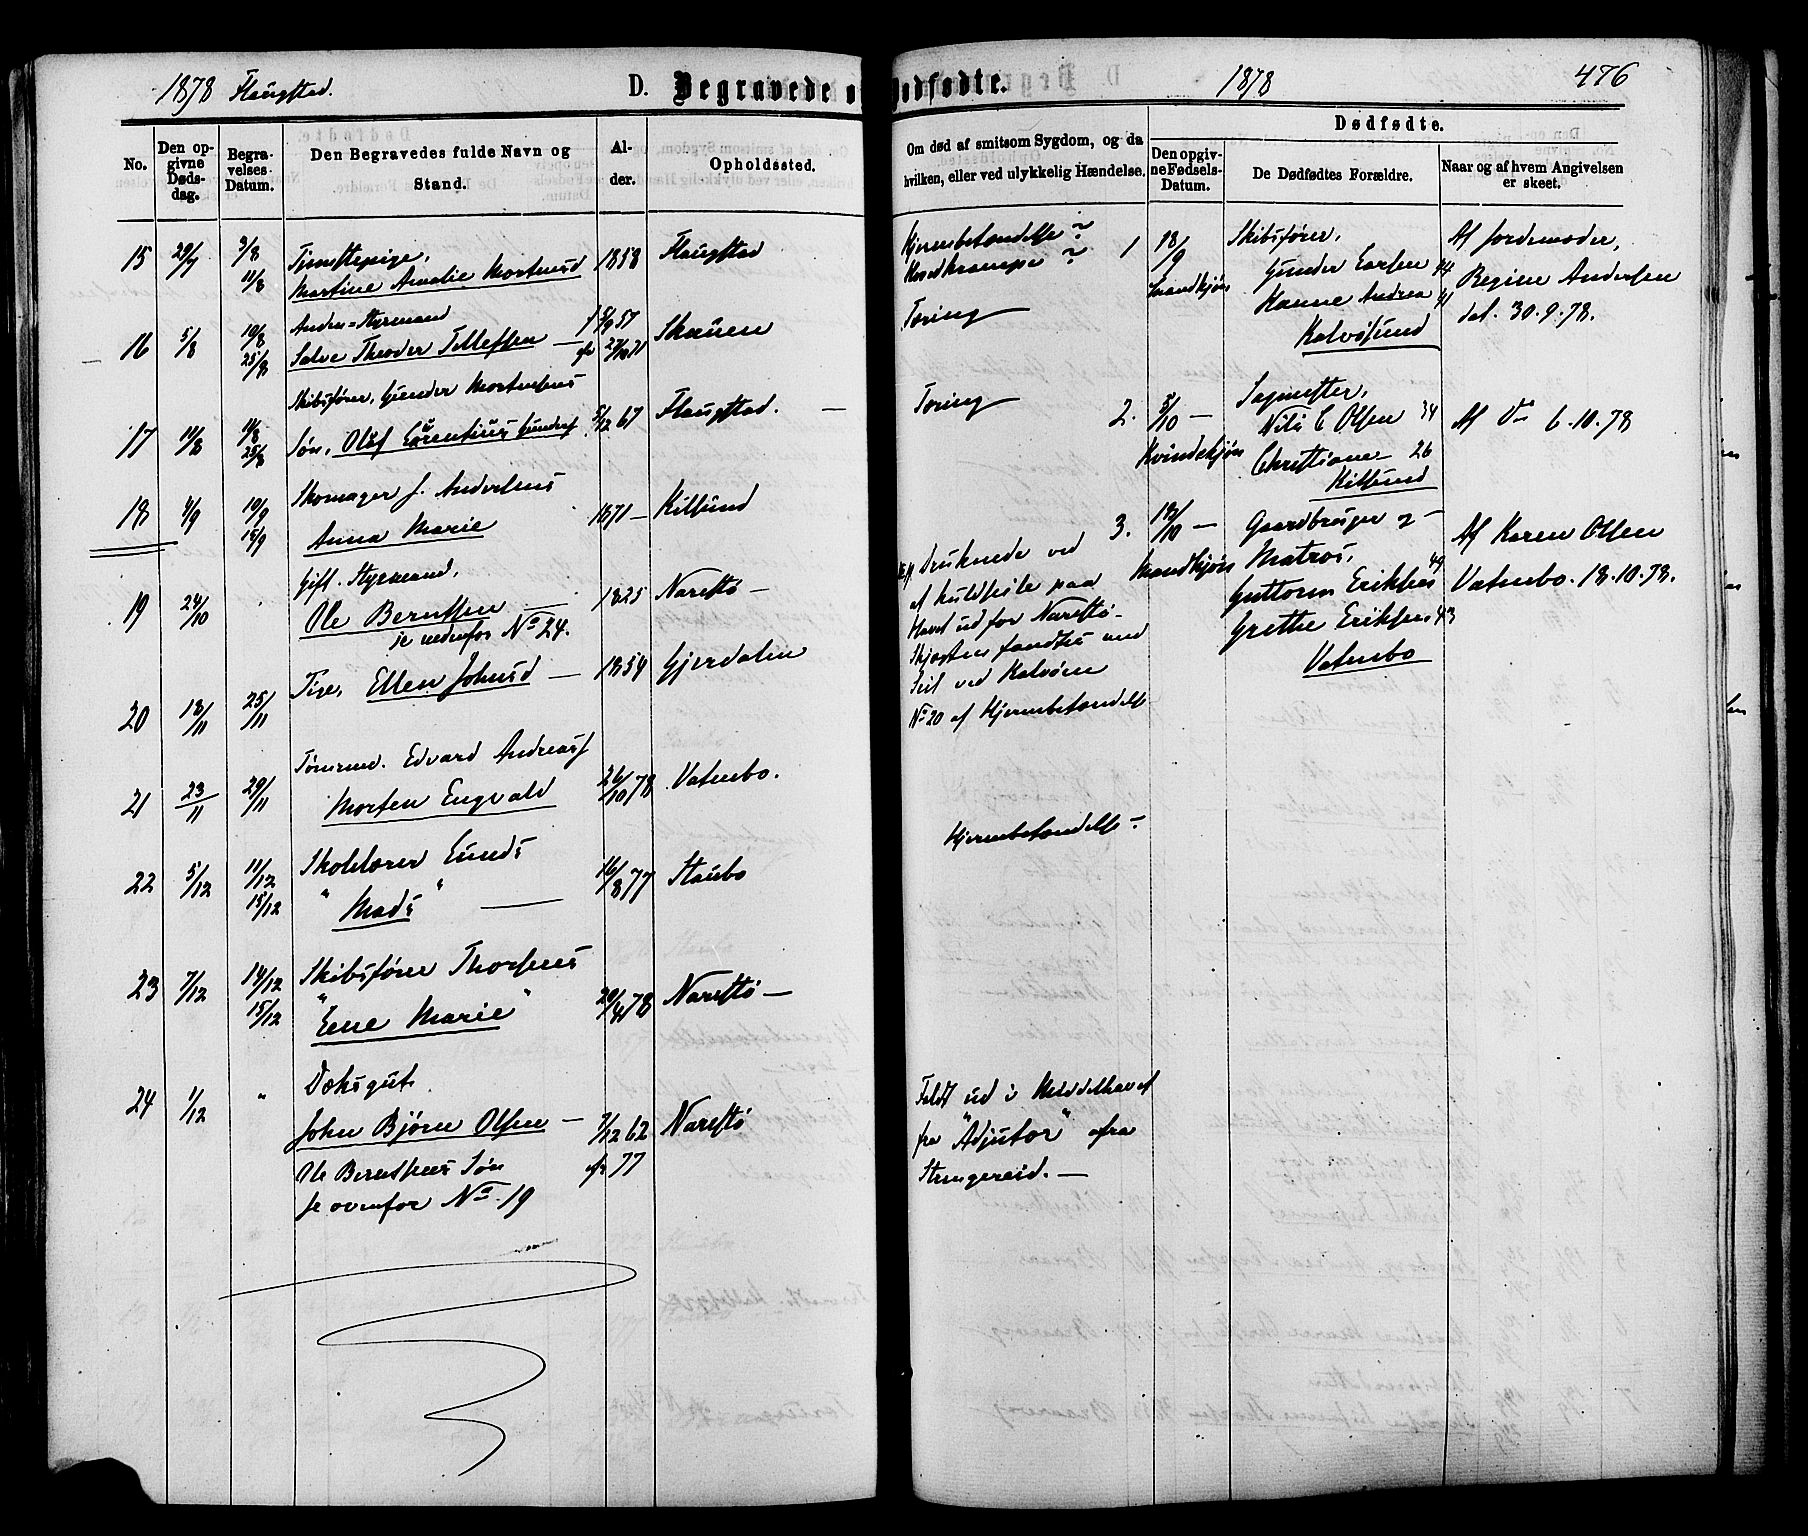 1878 Flaugstad.
D. Begravede o
No.
Den opgivne Dødsdag.
Begravelses Datum.
Den Begravedes fulde Navn og Stand.
Alder.
Opholdssted.
15 29/7 3/8 11/8 Tjenestepige,
Martine Amalie Mortensd 1858 Flaugstad
16 5/8 10/8 25/8 Anden-Styrmand
Salve Theodor Tellefsen — 57 Skauen
17 11/8 25/8 Skibsfører, Gunder Mortensens
Søn, Olaf Lorentius Gunders 5/12 67 Flaugstad. —
18 4/9 10/9 15/9 Skomager J. Andersens
Anna Marie 1871 — Kilsund
19 24/10 Gift. Styrmand,
Ole Berntsen — 1825 Narestö —
se nedenfor No 24.
20 18/11 25/11 Pige, Ellen Johnsd — 1854 Gjerdalen
21 23/11 29/11 Tømrmd. Edvard Andreass
Morten Engvald 26/10 78 Vatnbo.
22 5/12 11/12 15/12 Skolelærer Lunds
"Mads" — 16/8 77 Staubo
23 7/12 14/12 15/12 Skibsfører Thorsens
"Lene Marie" 20/4 78 Narestö —
24 1/12 " Dæksgut.
John Bjørn Olsen — 7/12 62 Narestö
Ole Berntsens Søn 77
se ovenfor No 19
ødfødte.
1878
476
Om død af smitsom Sygdom, og da hvilken, eller ved ulykkelig Hændelse.
Dødfødte.
Den opgivne Fødsels-Datum.
De Dødfødtes Forældre.
Naar og af hvem Angivelsen er skeet.
Hjernebetændelse ?
?
Tæring
Tæring
Druknede ved
af kuldseile paa
Havet ud for Narestö.
Skjøsten fandtes
Seil ved Kalvöen
No 20 af Hjernebetændelse
Hjernebetændelse.
Feldt ud i Middelhavet
fra "Adjutor" afra
Strengereid. —
1 18/9 Mandkjøn
Skibsfører,
Gunder Larsen 44
Hanne Andrea 41
Kalvøsund
Af Jordemoder,
Regine Andersen
del. 30.9.78.
2. 5/10 — Kvindekjøn
Sagmester,
Nils C Olsen 34
Christiane 26
Kilsund
Af Do 6.10.78
3. 18/10 — Mandkjøn
Gaardbruger og
Matros,
Guttorm Eriksen 49
Grethe Eriksen 43
Vatnbo
Af Karen Olsen
Vatnbo. 18.10.78.